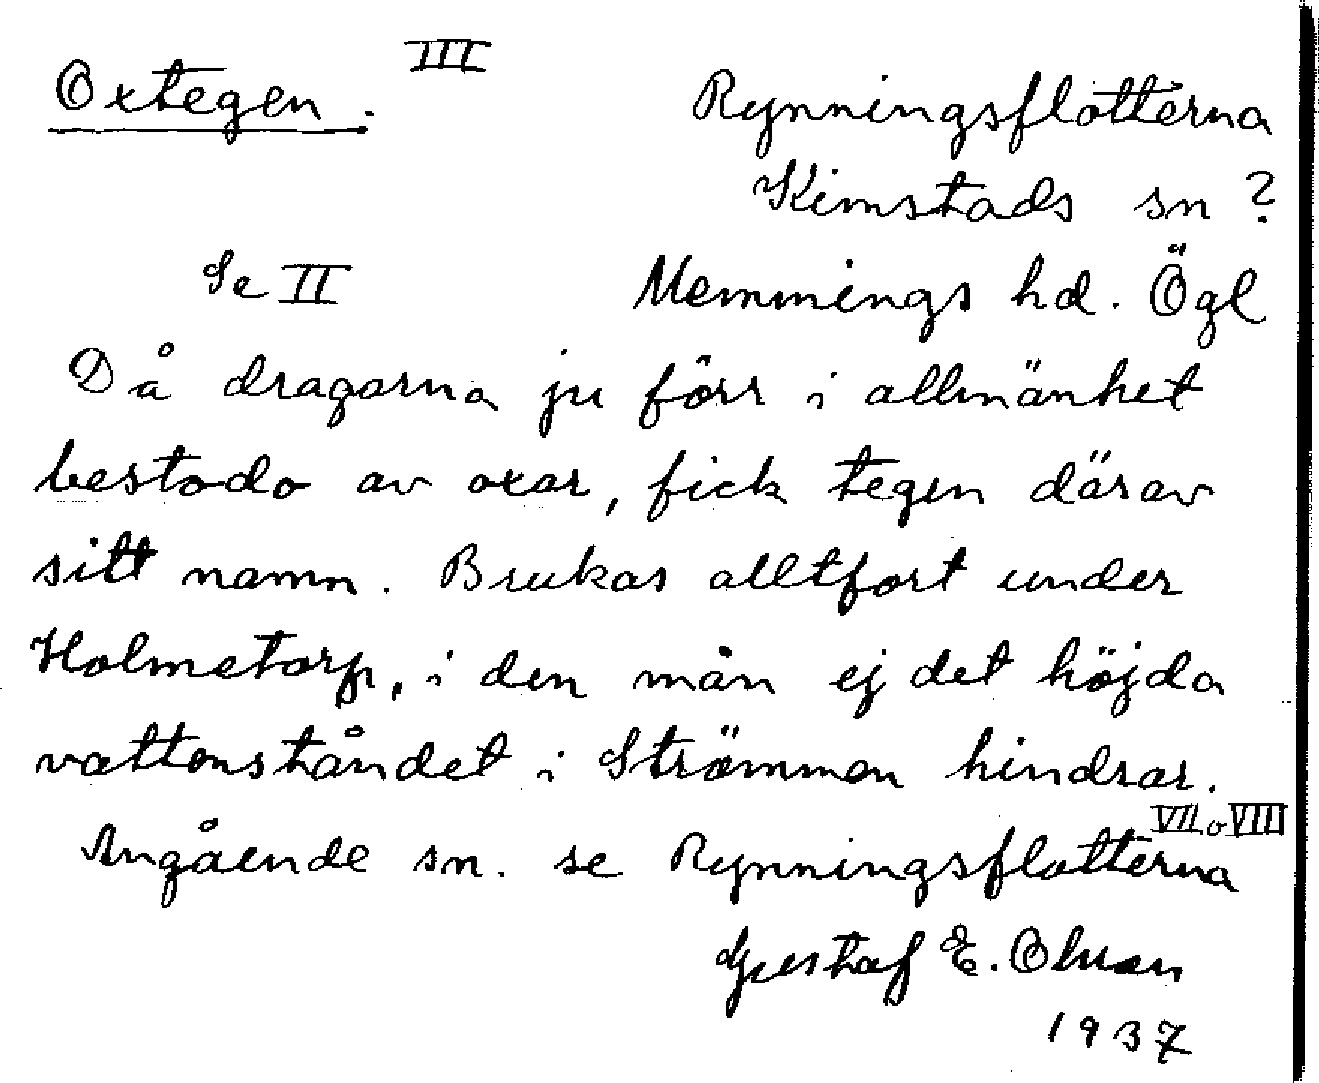 Oxtegen. III
Rynningsflotterna
Kimstads sn ?
Se II Memmings hd. Ögl
Då dragarna ju förr i allmänhet
bestodo av oxar, fick tegen därav
sitt namn. Brukas alltfort under
Holmetorp, i den mån ej det höjda
vattenståndet i Strömmen hindrar.
Angående sn. se Rynningsflotterna VII o VIII
Gustaf E. Olsson
1937